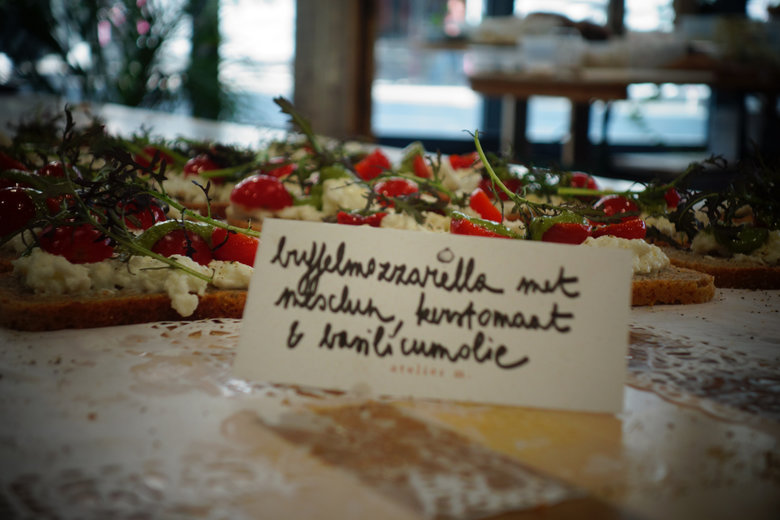 buffelmozzarella met
mesclun, kerstomaat
& basilicumolie
atelier m.